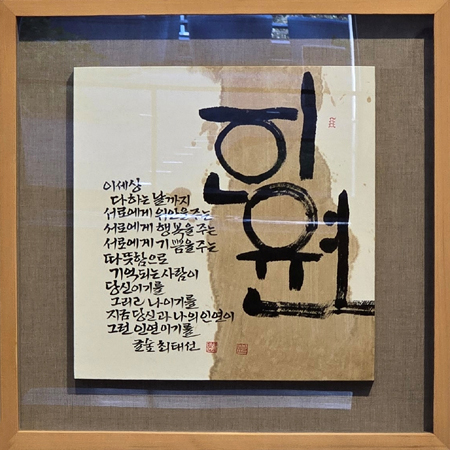 인연
이세상
다하는 날까지
서로에게 위안을 주는
서로에게 행복을 주는
서로에게 기쁨을 주는
따뜻함으로
기억되는 사람이
당신이기를
그리고 나이기를
지금 당신과 나의 인연이
그런 인연이기를
최태선